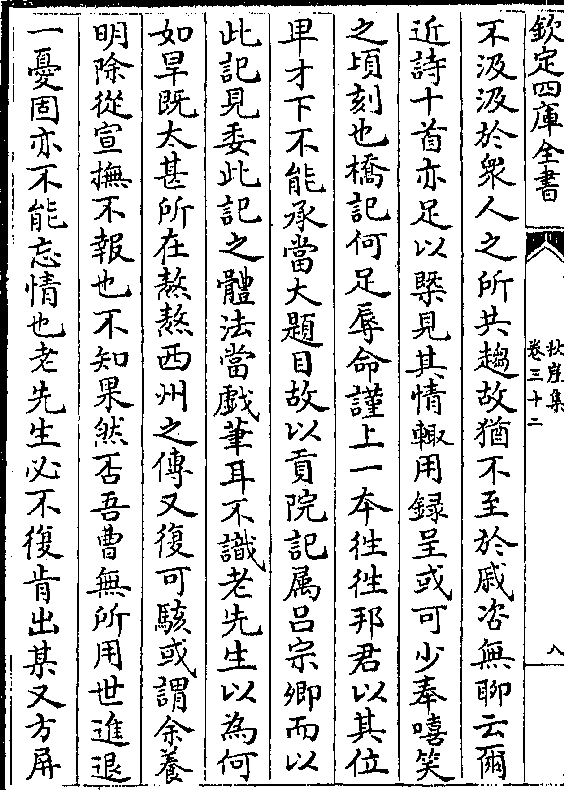 欽定四庫全書
秋崖集
卷三十二
八
不汲汲於衆人之所共趨故猶不至於戚咨無聊云爾
近詩十首亦足以槩見其情輙用録呈或可少奉嘻笑
之頃刻也橋記何足辱命謹上一本徃徃邦君以其位
卑才下不能承當大題目故以貢院記属吕宗卿而以
此記見委此記之體法當戯筆耳不識老先生以為何
如旱既太甚所在熬熬西州之傳又復可駭或謂余養
明除從宣撫不報也不知果然否吾曹無所用世進退
一憂固亦不能忘情也老先生必不復肯出某又方屏